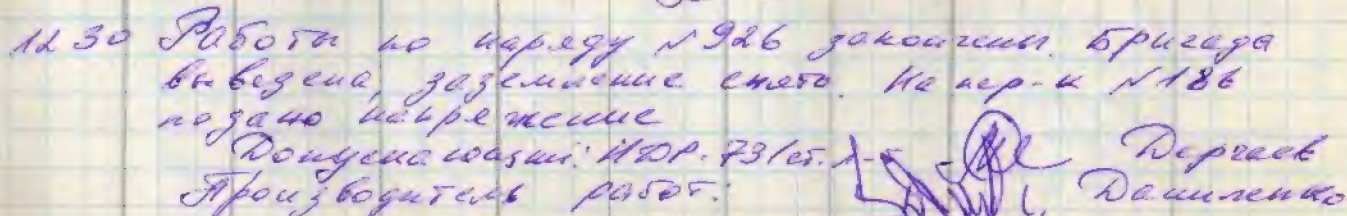 12 30 Работы по наряду №926 закончены. Бригада
выведена, заземление снято. На пер-к №186
подано напряжение
Допускающий:
Производитель работ: Даниленко